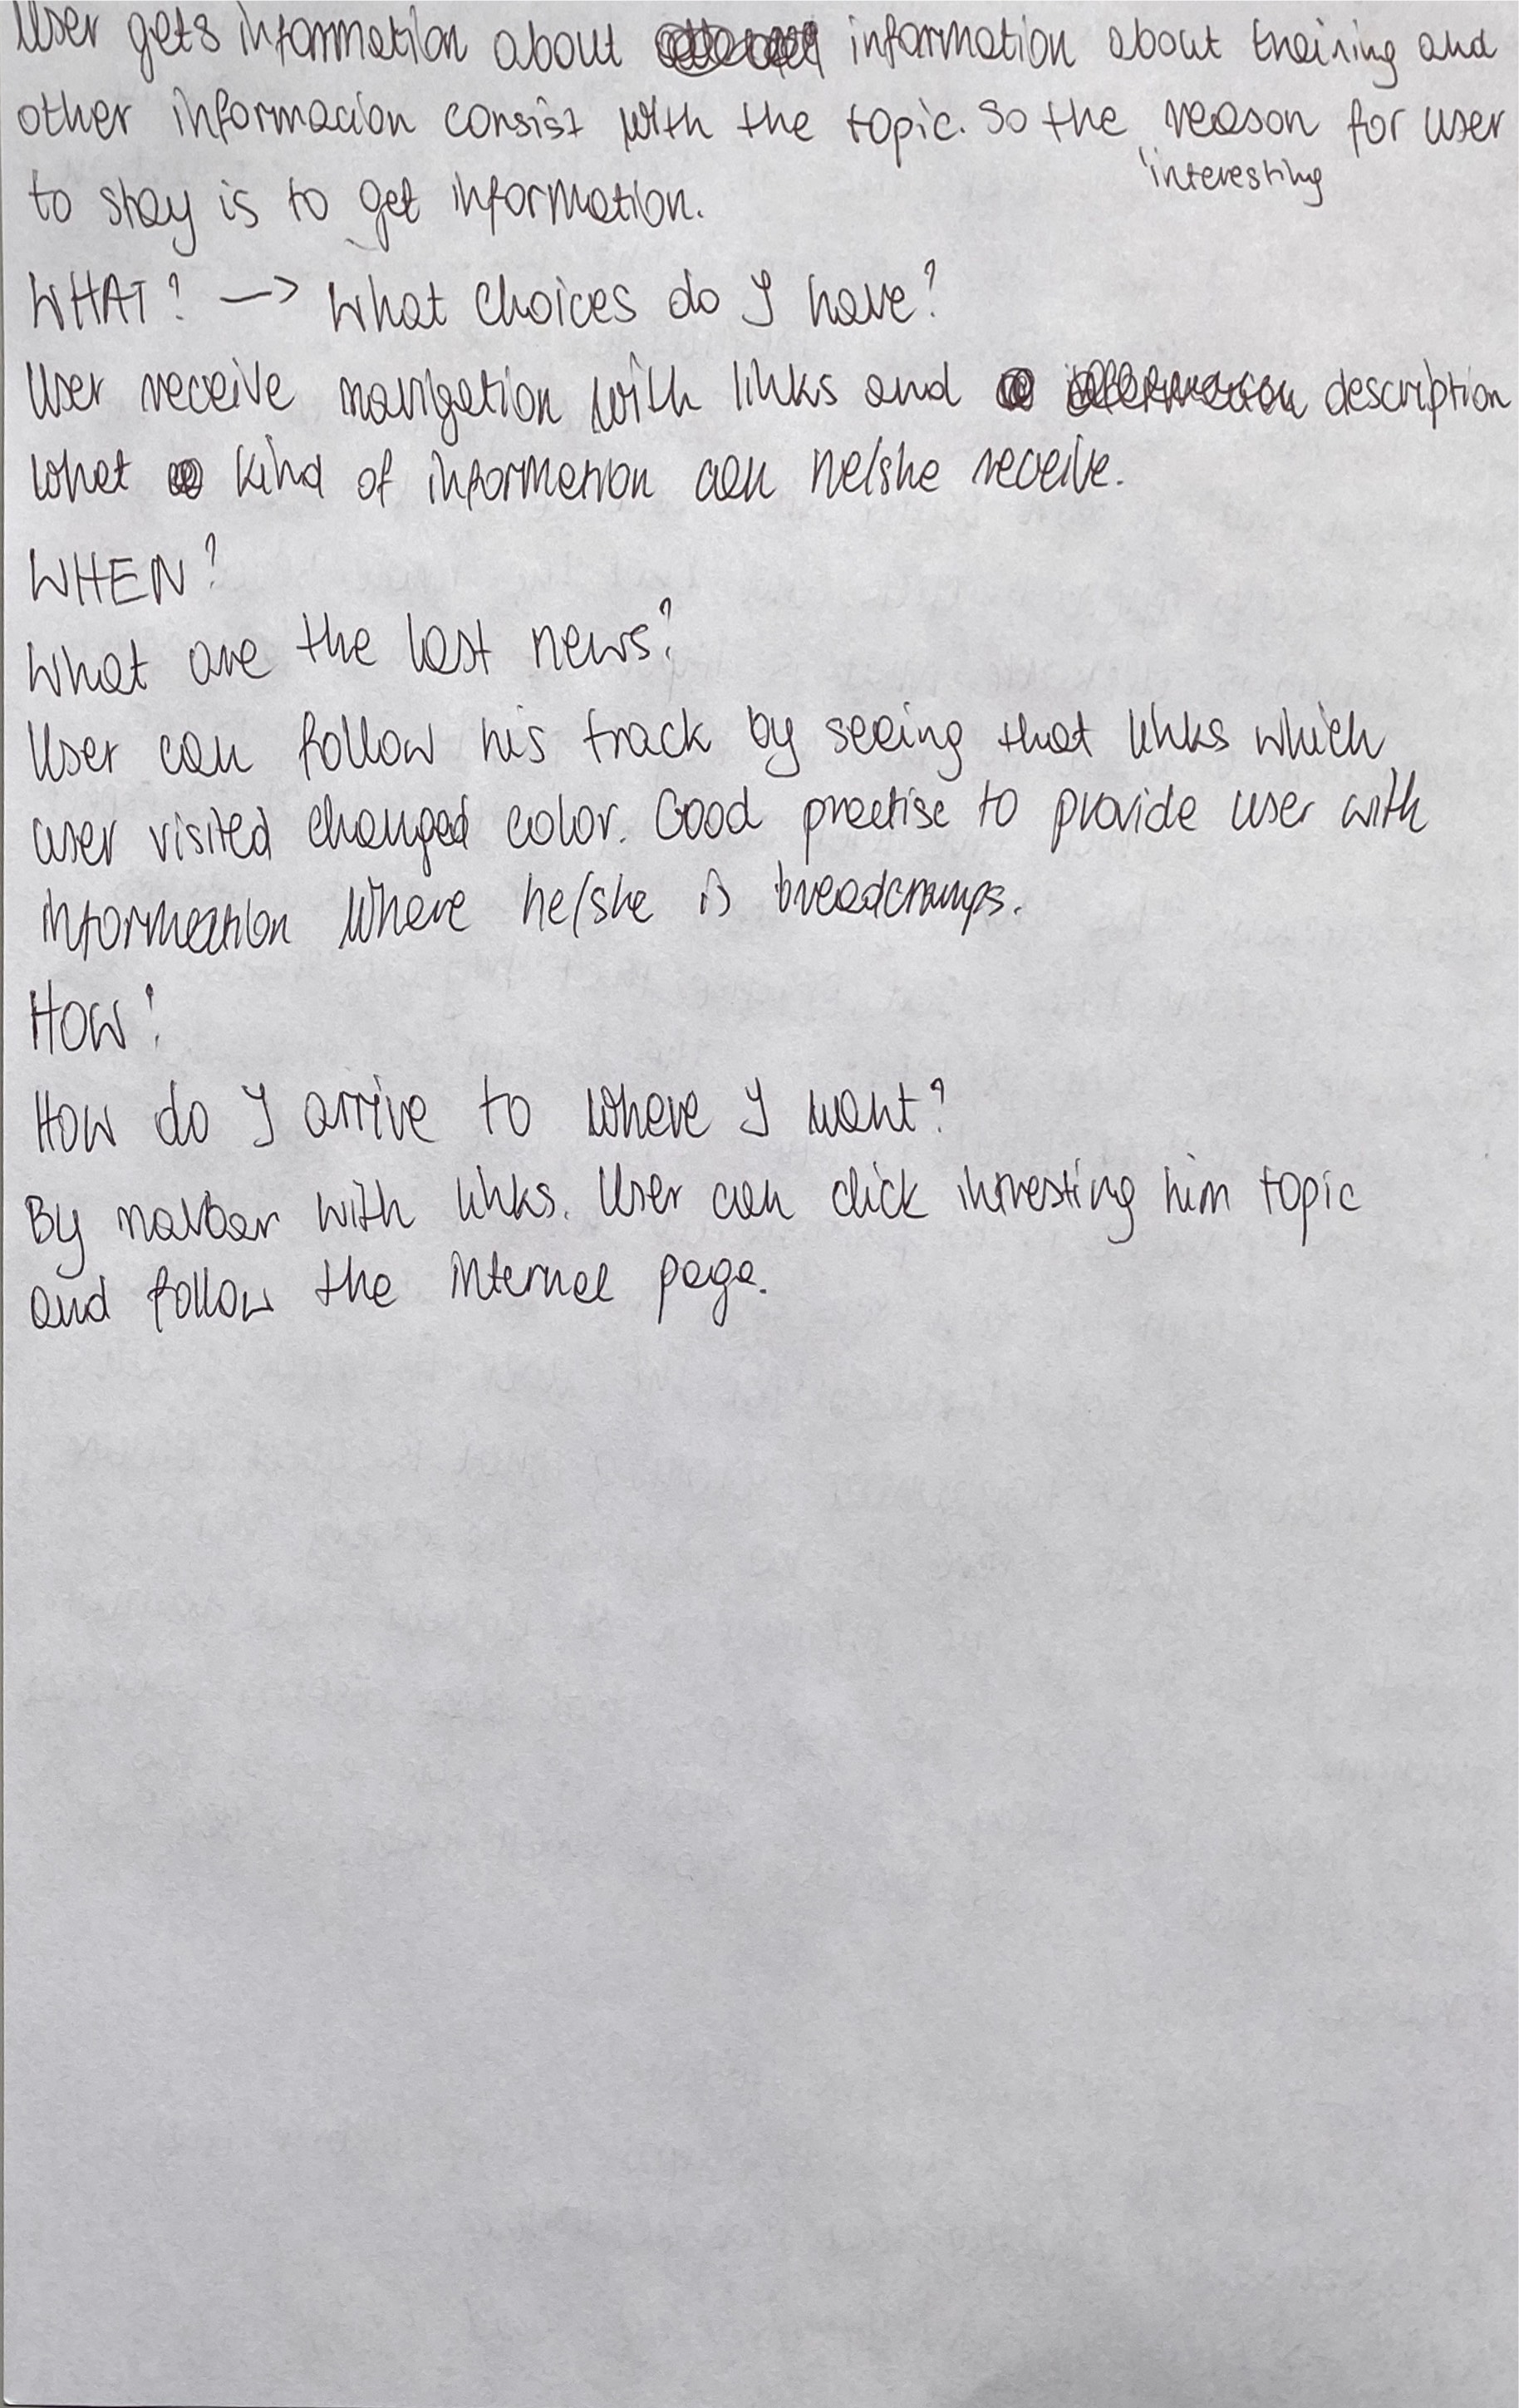 User gets information about information about training and
other informacion consist with the topic. So the reason for user
interesting
to stay is to get information.
WHAT? -> What choices do I have?
User receive navigation with links and description
what kind of information can he/she receive.
WHEN?
What are the last news?
User can follow his track by seeing that links which
user visited changed color. Good practise to provide user with
information where he/she is breadcrumps.
HOW?
How do I arrive to where I want?
By navbar with links. User can click intresting him topic
and follow the internel page.